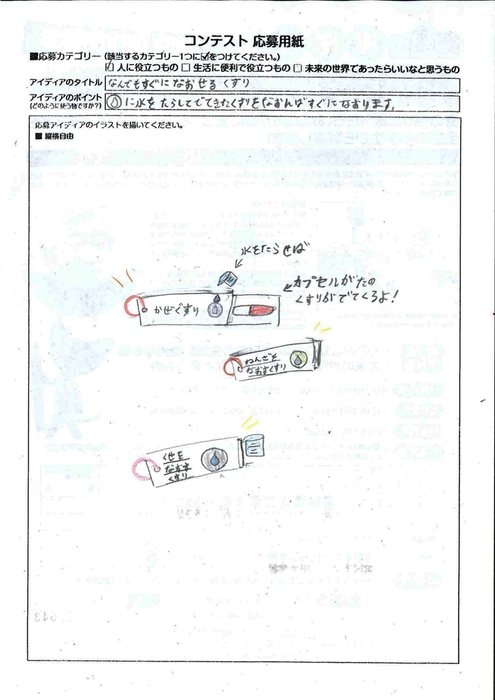 コンテスト 応募用紙
■応募カテゴリー（該当するカテゴリー1つに☑をつけてください。）
☑ 人に役立つもの □ 生活に便利で役立つもの □ 未来の世界であったらいいなと思うもの
アイディアのタイトル なんでもすぐになおせるくすり
アイディアのポイント
（どのように使う物ですか？） に水をたらしてでてきたくすりをなおんばすぐになおります。
応募アイディアのイラストを描いてください。
■ 縦横自由
水をたらせば
カプセルがたの
くすりがでてくるよ！
かぜぐすり
ねんざを
なおすくすり
くせを
なおす
くすり